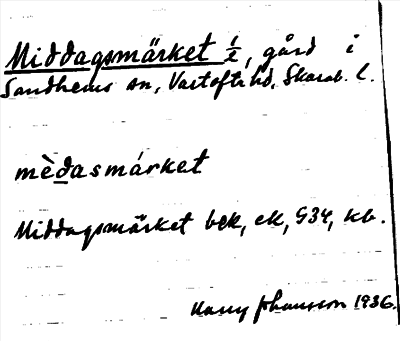 Middagsmärket 1/2, gård i
Sandhems sn, Vartofta hd, Skarab. l.
mèdasmárket
Middagsmärket bek, ek, G34, kb.
Harry Johansson 1936.